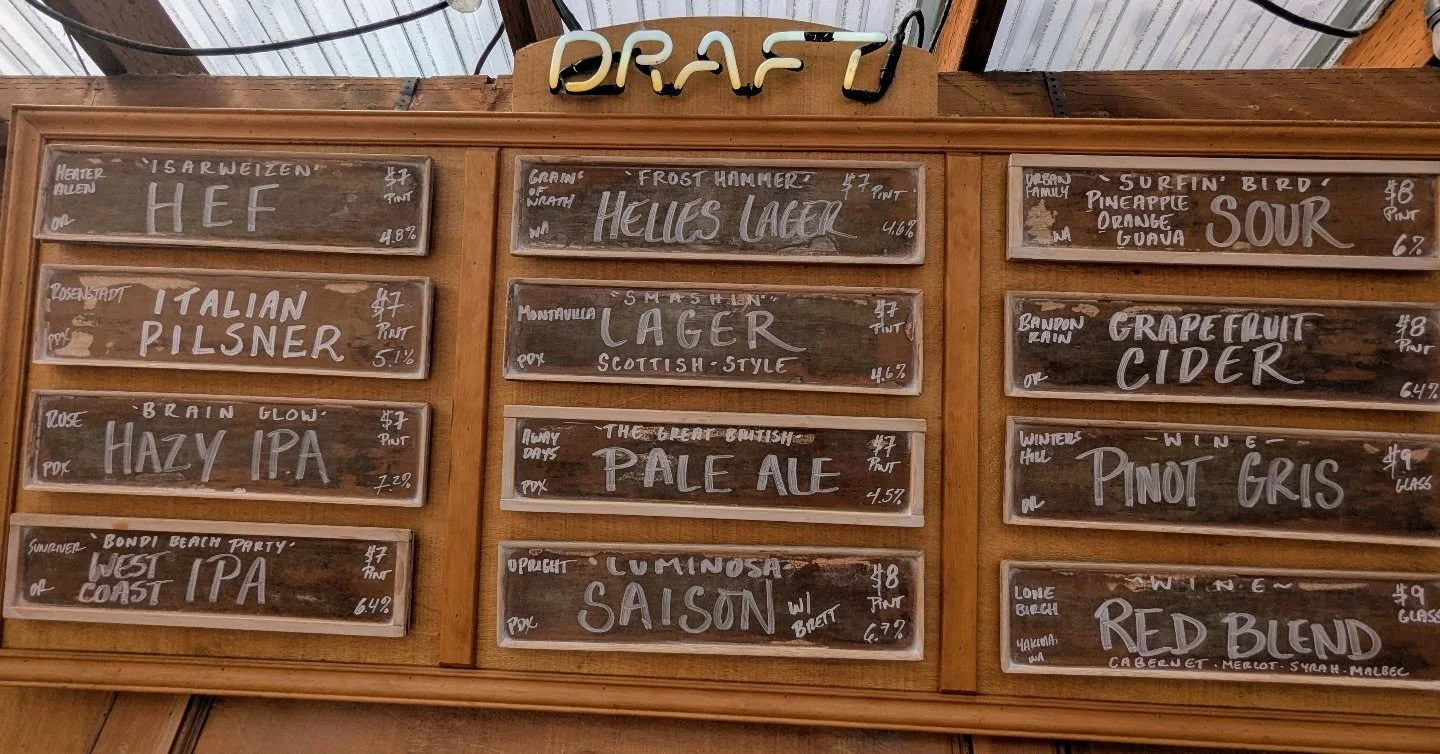 DRAFT
HEATER ALLEN
"ISARWEIZEN"
HEF
OR
$7 PINT
4.8%
ROSENSTADT
ITALIAN
PILSNER
PDX
$7 PINT
5.1%
ROSE
"BRAIN GLOW"
HAZY IPA
PDX
$7 PINT
7.2%
SUNRIVER
"BONDI BEACH PARTY"
WEST COAST IPA
OR
$7 PINT
6.4%
GRAINS OF WRATH
"FROST HAMMER"
HELLES LAGER
WA
$7 PINT
4.6%
MONTAVILLA
"SMASHLN"
LAGER
SCOTTISH-STYLE
PDX
$7 PINT
4.6%
AWAY DAYS
THE GREAT BRITISH
PALE ALE
PDX
$7 PINT
4.5%
UPRIGHT
"LUMINOSA"
SAISON
W/ BRETT
PDX
$8 PINT
6.7%
URBAN FAMILY
"SURFIN' BIRD"
PINEAPPLE
ORANGE
GUAVA
SOUR
WA
$8 PINT
6%
BANDON RAIN
GRAPEFRUIT
CIDER
OR
$8 PINT
6.4%
WINTERS HILL
- WINE -
PINOT GRIS
OR
$9 GLASS
LONE BIRCH
~ WINE ~
RED BLEND
CABERNET · MERLOT · SYRAH · MALBEC
YAKIMA, WA
$9 GLASS